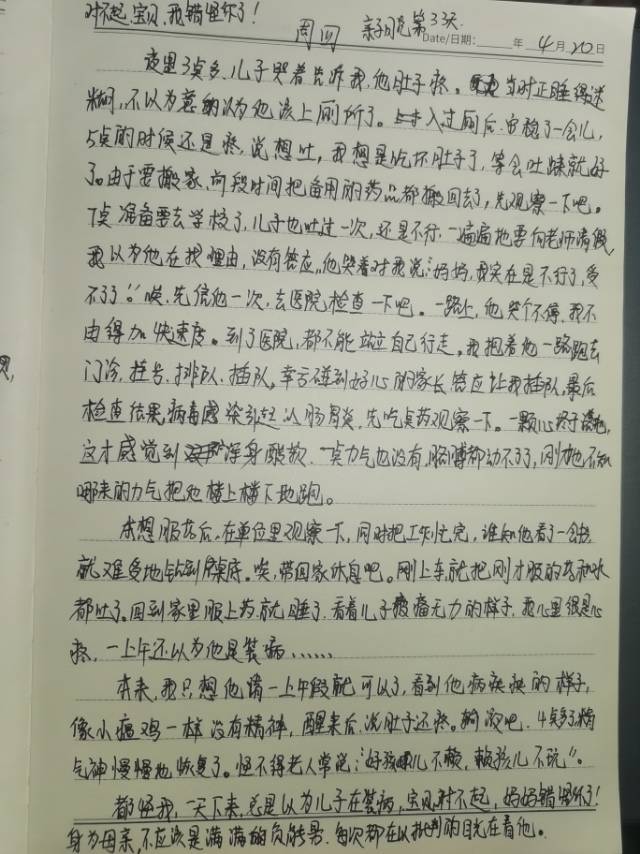 对不起,宝贝,我错怪你了!
周四 亲子日记第33天
Date/日期: 年 4月20日
夜里3点多,儿子哭着告诉我,他肚子疼。当时正睡得迷
糊,不以为意的以为他该上厕所了。入过厕后,安稳了一会儿,
5点的时候还是疼,说想吐,我想是吃坏肚子了,等会吐出来就好
了。由于要搬家,前段时间把备用的药品都搬回去了,先观察一下吧。
7点准备要去学校了,儿子也吐过一次,还是不行,一遍遍地要向老师请假,
我以为他在找理由,没有答应。他哭着对我说:“妈妈,我实在是不行了,受
不了了!”唉,先信他一次,去医院检查一下吧。一路上,他哭个不停,我不
由得加快速度。到了医院,都不能站立自己行走,我抱着他一路跑去
门诊,挂号,排队,插队,幸亏碰到好心的家长答应让我插队,最后
检查结果,病毒感染引起以肠胃炎,先吃点药观察一下。一颗心终于落地,
这才感觉到浑身酸软,一点力气也没有,胳膊都动不了了,刚才也不知
哪来的力气把他楼上楼下地跑。
本想服药后,在单位里观察一下,同时把工作忙完,谁知他看了一会书
就难受地钻到桌底。唉,带回家休息吧。刚上车,就把刚才服的药和水
都吐了。回到家里服上药就睡了,看着儿子疲惫无力的样子,我心里很是心
疼,一上午还以为他是装病......
本来,我只想他请一上午假就可以了,看到他病殃殃的样子,
像小瘟鸡一样没有精神,醒来后,说肚子还疼。躺没吧,4点多了精
气神慢慢地恢复了。怪不得老人常说:“好孩儿不赖,赖孩儿不玩”。
都怪我,一天下来,总是以为儿子在装病,宝贝,对不起,妈妈错怪你了!
身为母亲,不应该是满满的负能量,每次都在以批判的目光在看他。